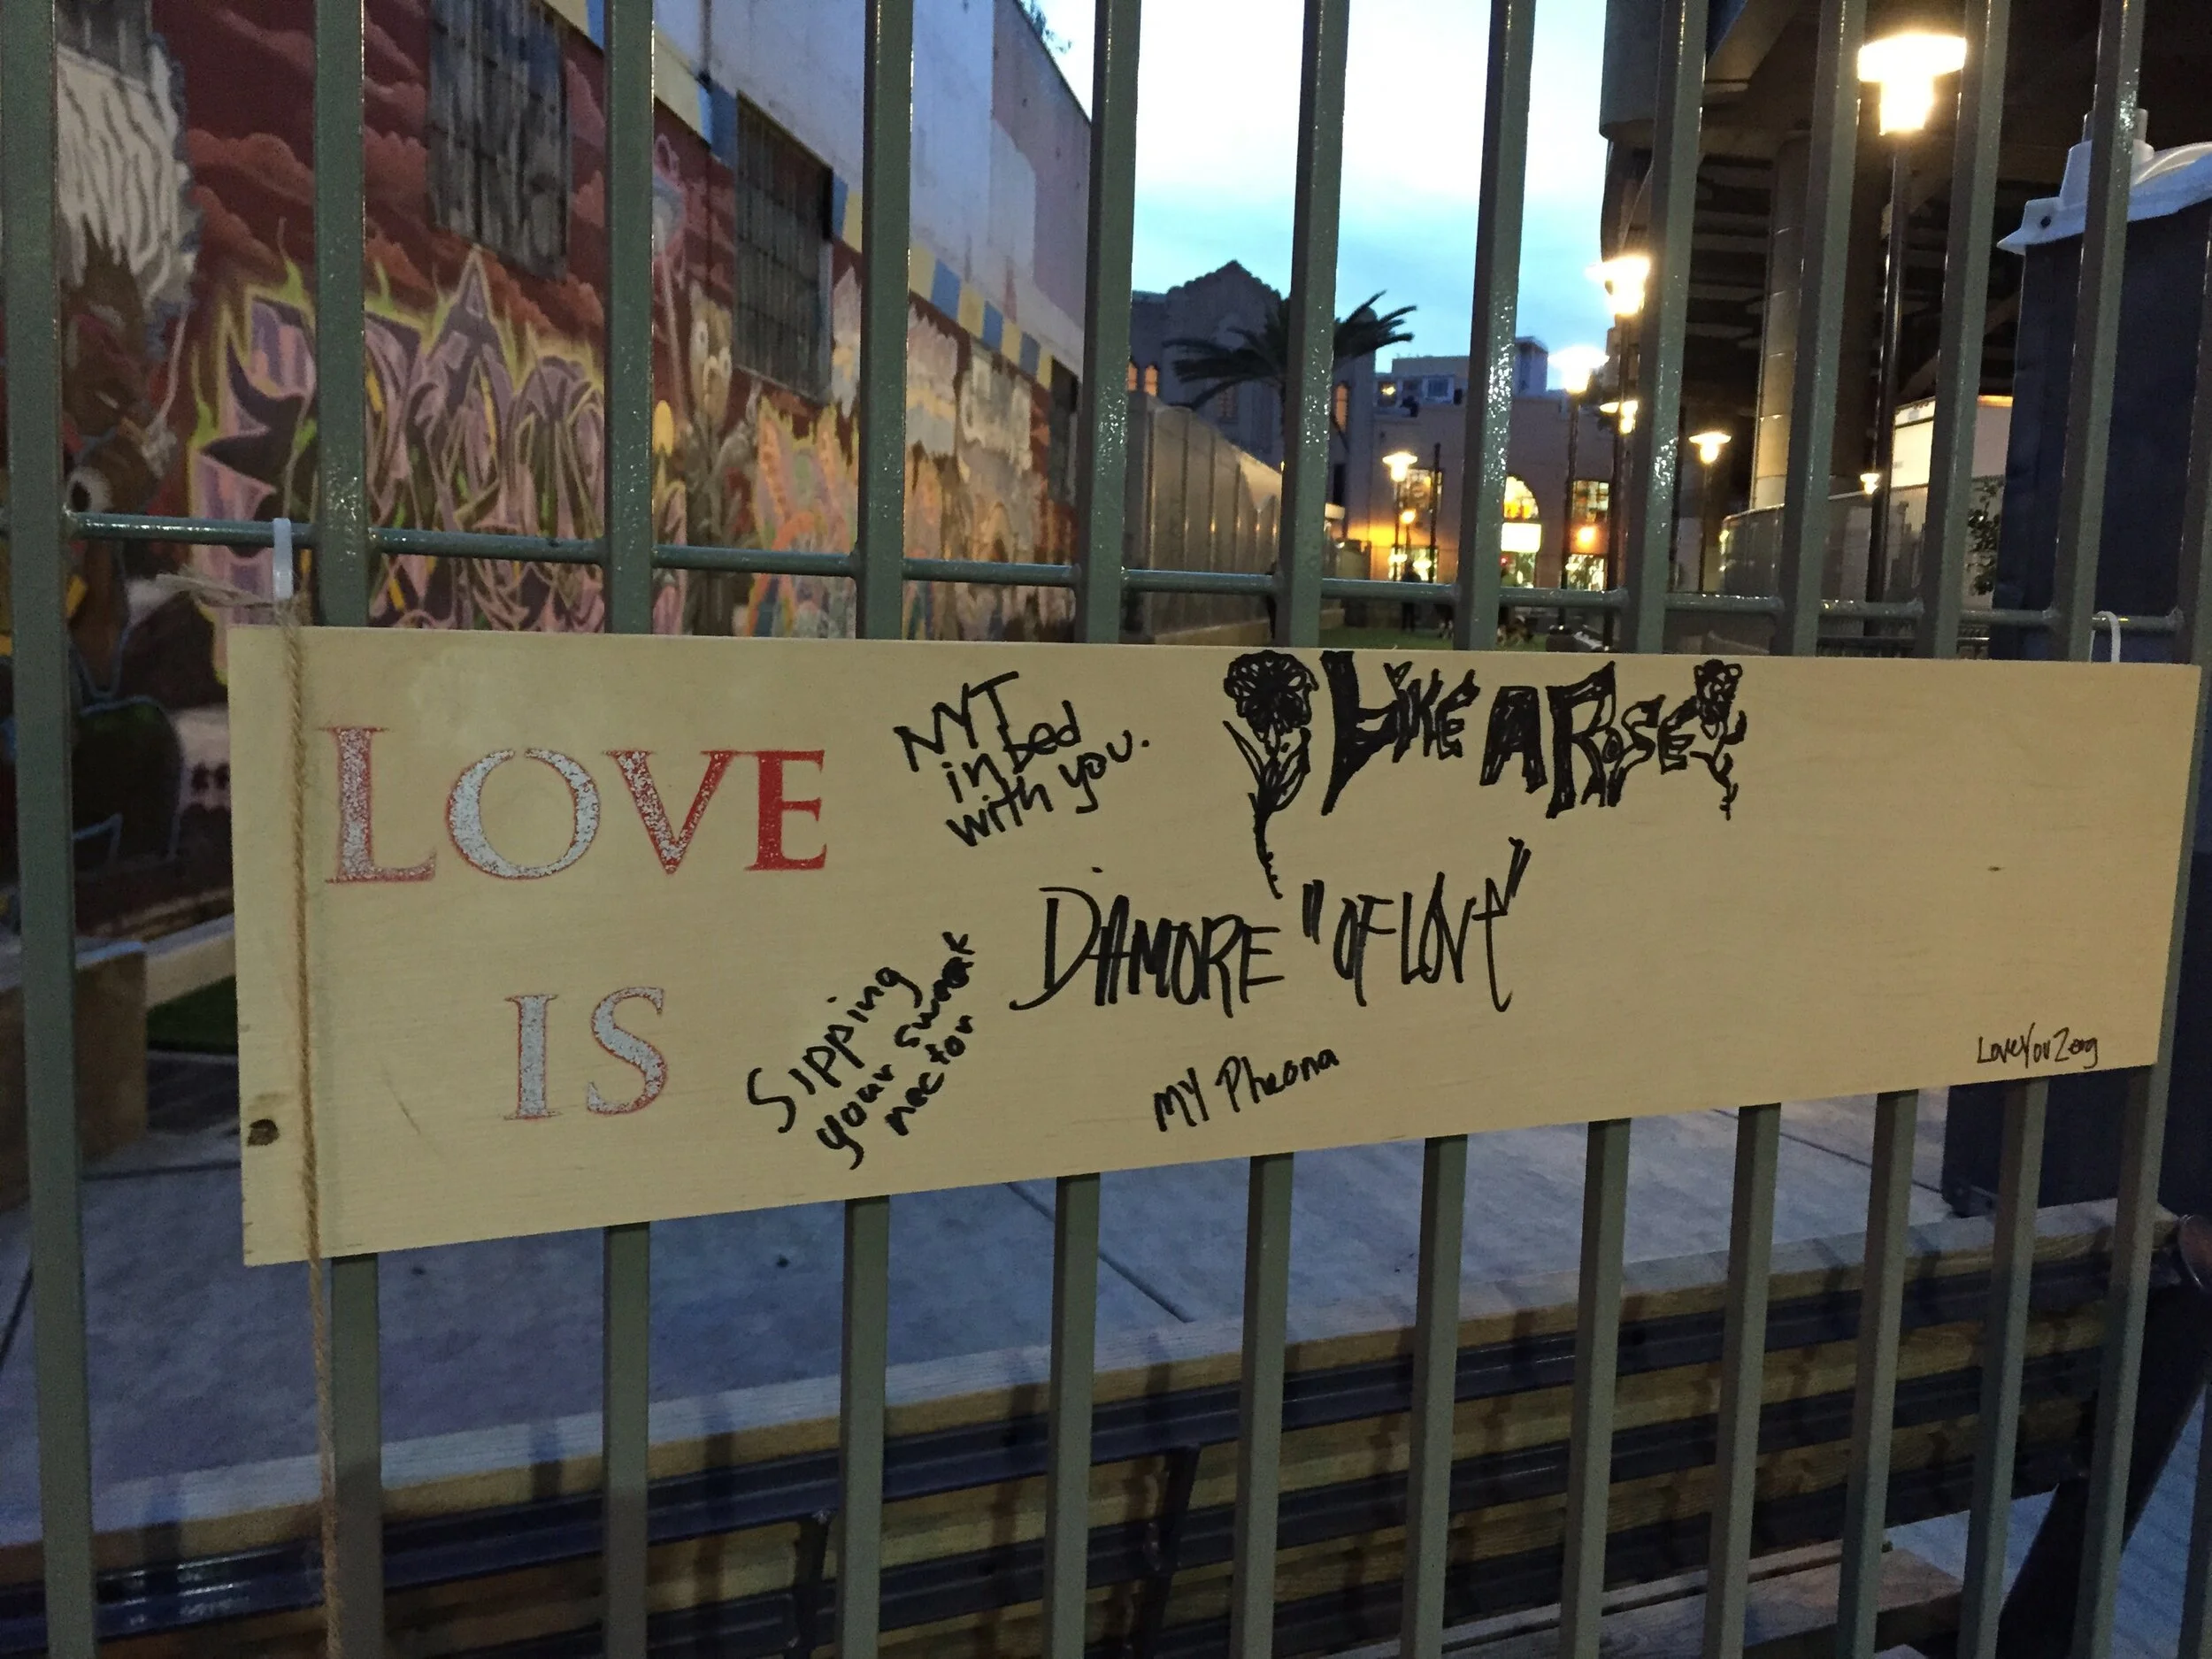 LOVE
IS
NYT
in bed
with you.
LIKE A ROSE
D'AMORE "OF LOVE"
Sipping
your sweak
nector
MY Pheona
LoveYouZerg